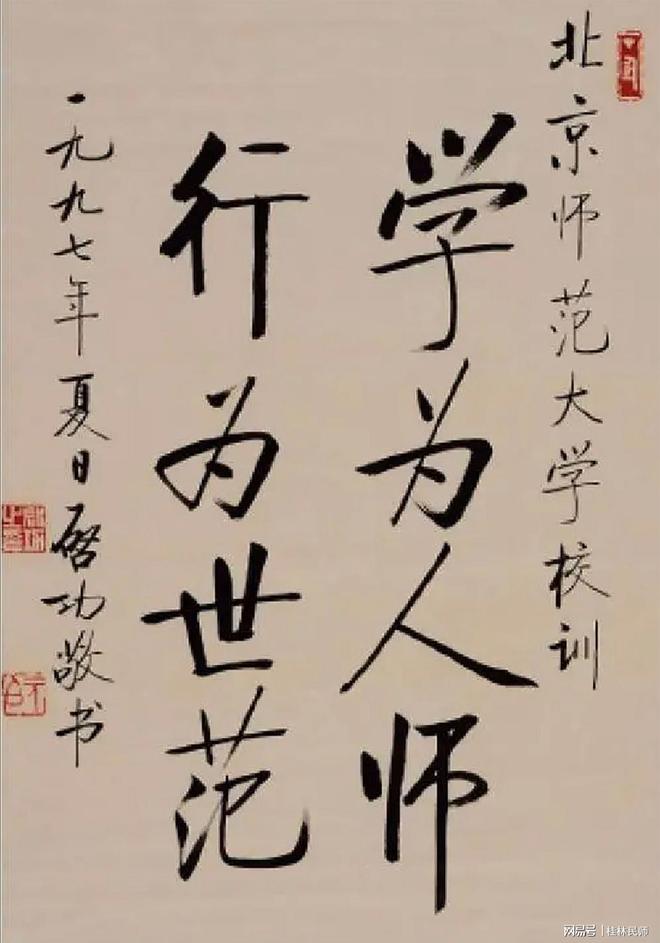 北京师范大学校训
学为人师
行为世范
一九九七年夏日启功敬书
网易号 | 桂林民师